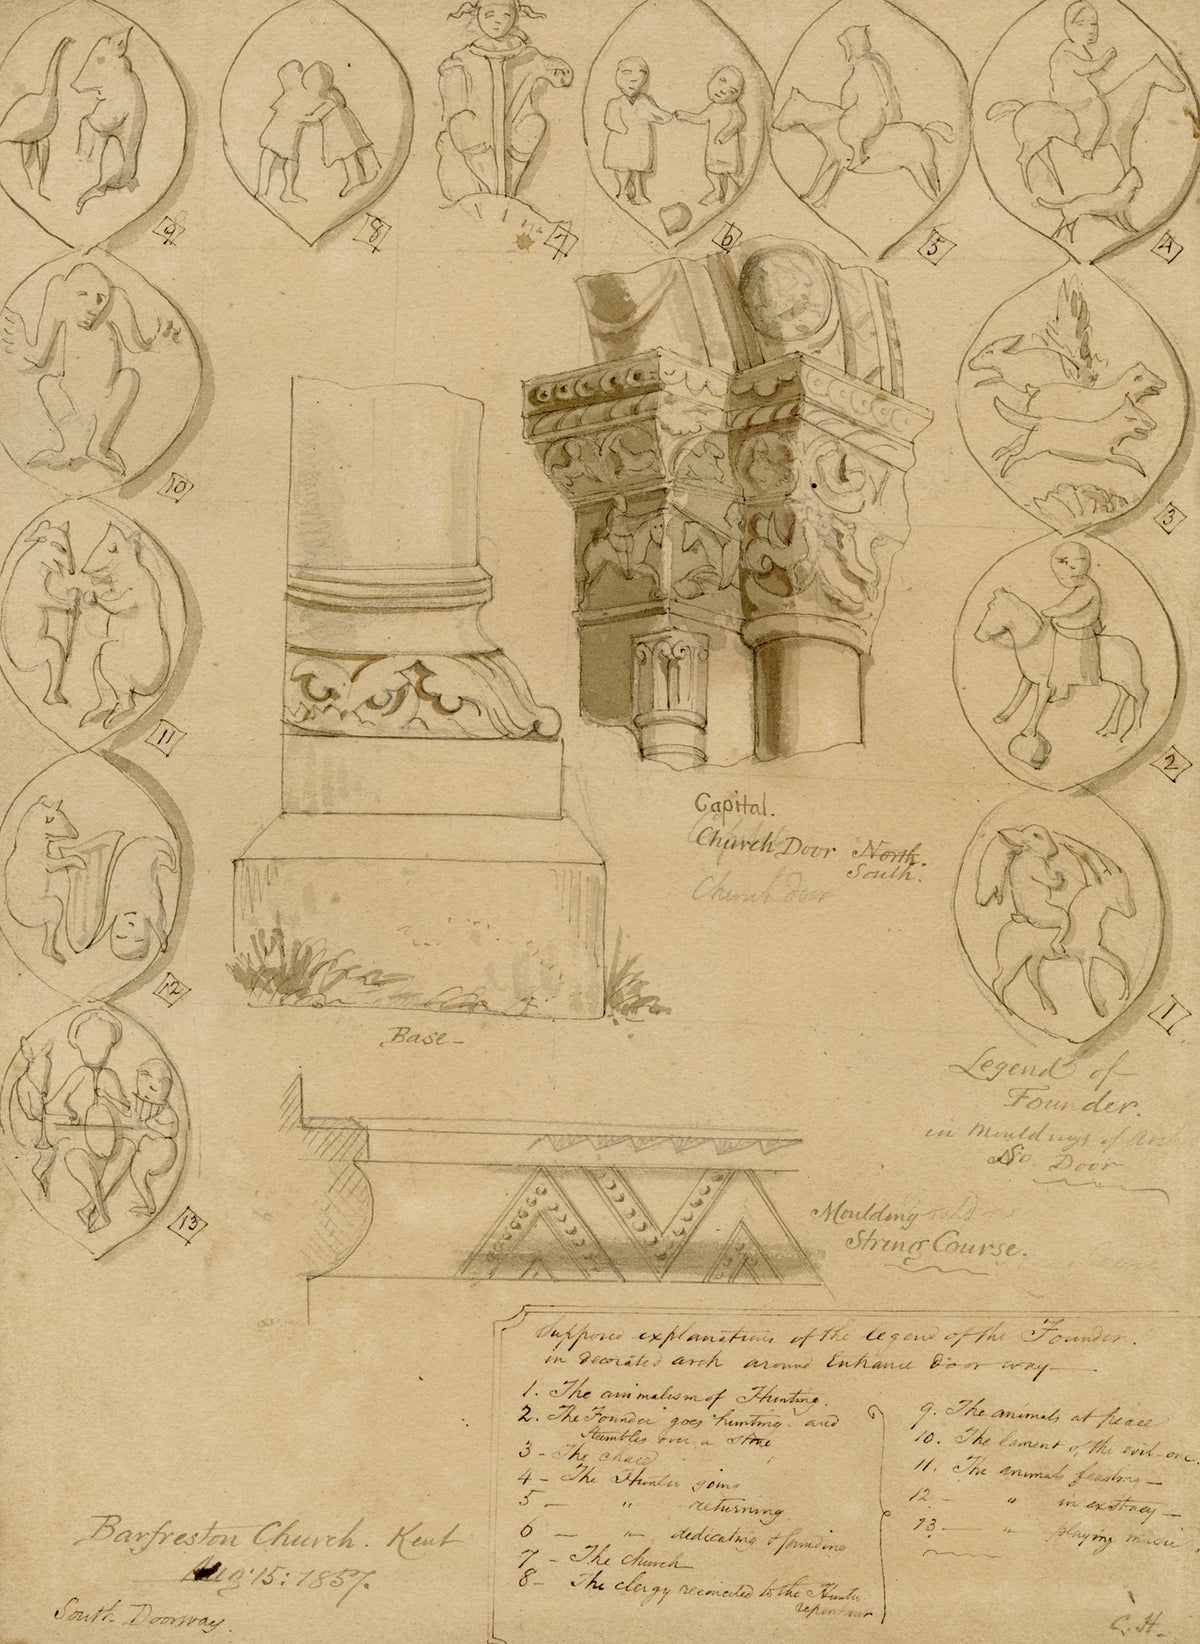 9
8
7
6
5
4
10
3
11
2
12
1
13
Capital.
Church Door North.
South.
Church door
Base-
Legend of
Founder.
in mouldings of Arch
Door
Moulding
String Course.
Supposed explanations of the legend of the Founder.
in decorated arch around Entrance Door way-
1. The animalism of Hunting.
2. The Founder goes hunting and
stumbles over a stone
3 - The chace
4 - The Hunter going
5 - " returning
6 - " dedicating & founding
7 - The church
8 - The clergy reconciled to the Hunter
9. The animals at peace
10. The lament of the evil-one.
11. The animals feasting-
12 - " in extacy-
13 - " playing music
Barfreston Church. Kent
Aug 15: 1857.
South Doorway.
C. H.